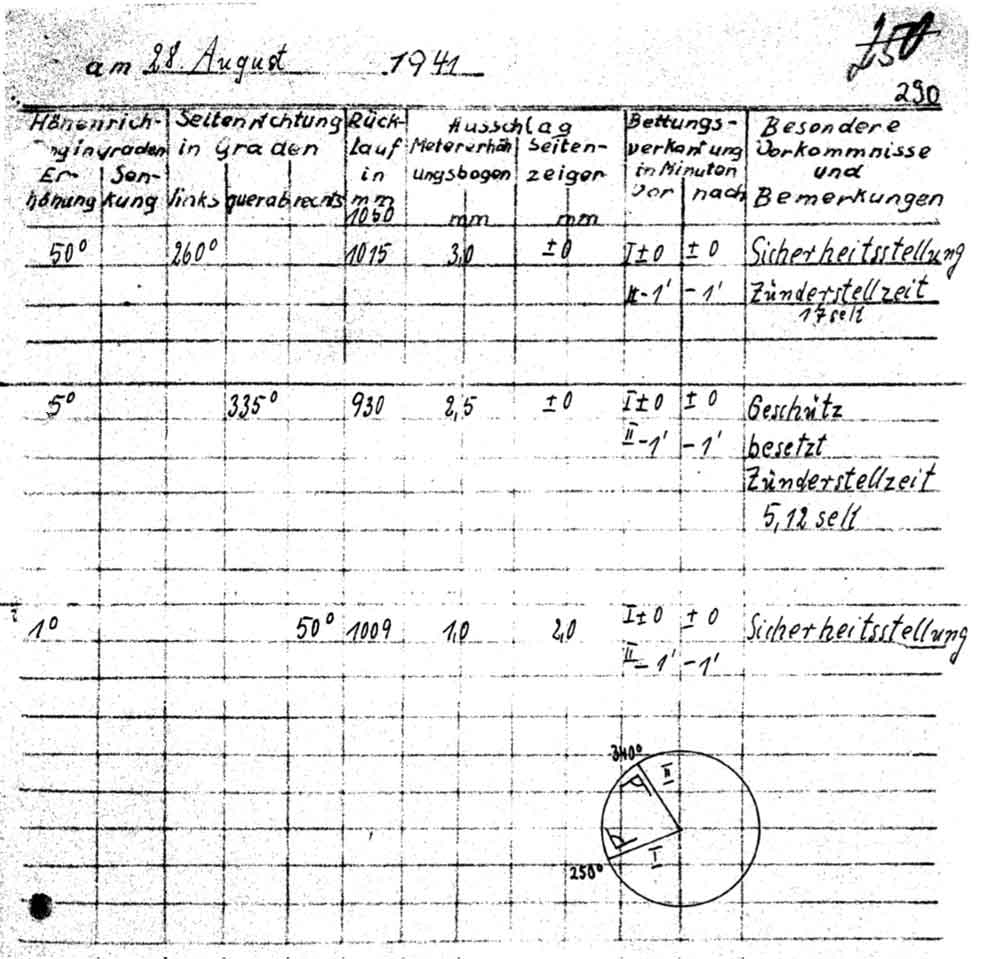 am 28. August 1941
250
290
Höhenrich- Seitenrichtung Rück- Ausschlag Bettungs- Besondere
ng in graden in Graden lauf Metererhöh Seiten- verkantung Vorkommnisse
Er- Sen- in ungsbogen zeiger in Minuten und
höhung kung links querab rechts mm mm mm Vor nach Bemerkungen
1050
50° 260° 1015 3,0 ±0 I±0 ±0 Sicherheitsstellung
II-1' -1' Zünderstellzeit
17 sek
5° 335° 930 2,5 ±0 I±0 ±0 Geschütz
II-1' -1' besetzt
Zünderstellzeit
5,12 sek
1° 50° 1009 1,0 2,0 I±0 ±0 Sicherheitsstellung
II-1' -1'
340°
II
I
250°